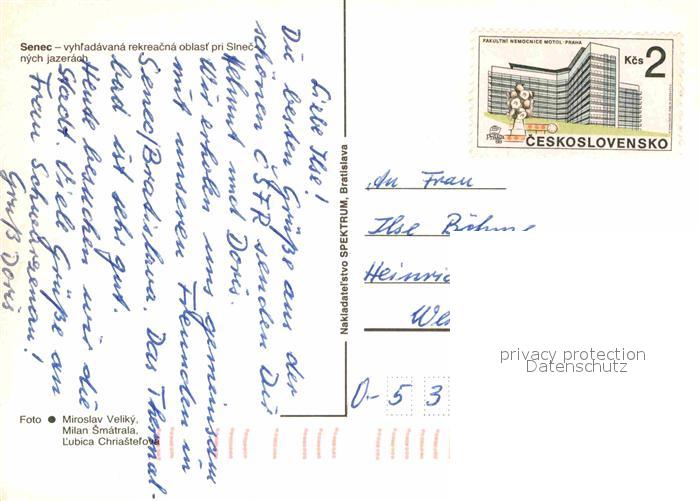 Senec – vyhľadávaná rekreačná oblasť pri Slneč-
ných jazerách
Liebe Ilse!
Die besten Grüße aus der
schönen ČSFR senden Dir
Helmut und Doris.
Wir erholen uns gemeinsam
mit unseren Freunden in
Senec/Bratislava. Das Thermal-
bad ist sehr gut.
Heute besuchen wir die
Stadt. Viele Grüße an
Frau Schwarzenau!
Gruß Doris
Foto ● Miroslav Veliký,
Milan Šmátrala,
Ľubica Chriašteľová
Nakladateľstvo SPEKTRUM, Bratislava
FAKULTNÍ NEMOCNICE MOTOL - PRAHA
Kčs 2
ČESKOSLOVENSKO
An Frau
Ilse Böhme
Heinric
We
D- 5 3
privacy protection
Datenschutz